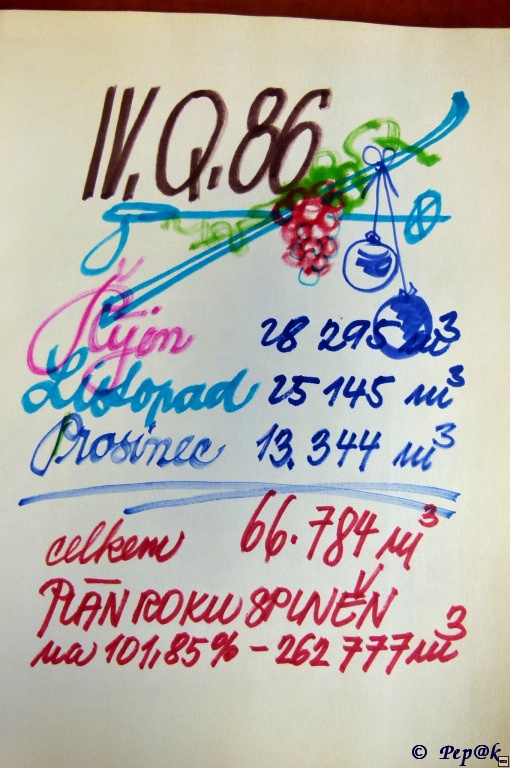 IV. Q. 86
Říjen 28 295 m³
Listopad 25 145 m³
Prosinec 13.344 m³
celkem 66.784 m³
PLÁN ROKU SPLNĚN
na 101,85% - 262 777 m³
© Pep@k